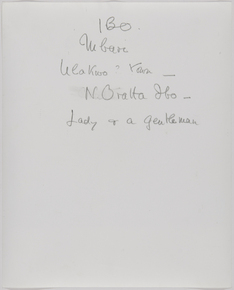 IBO.
Mbari
Ulakwo ? Town —
N. Oratta Ibo —
Lady & a gentleman